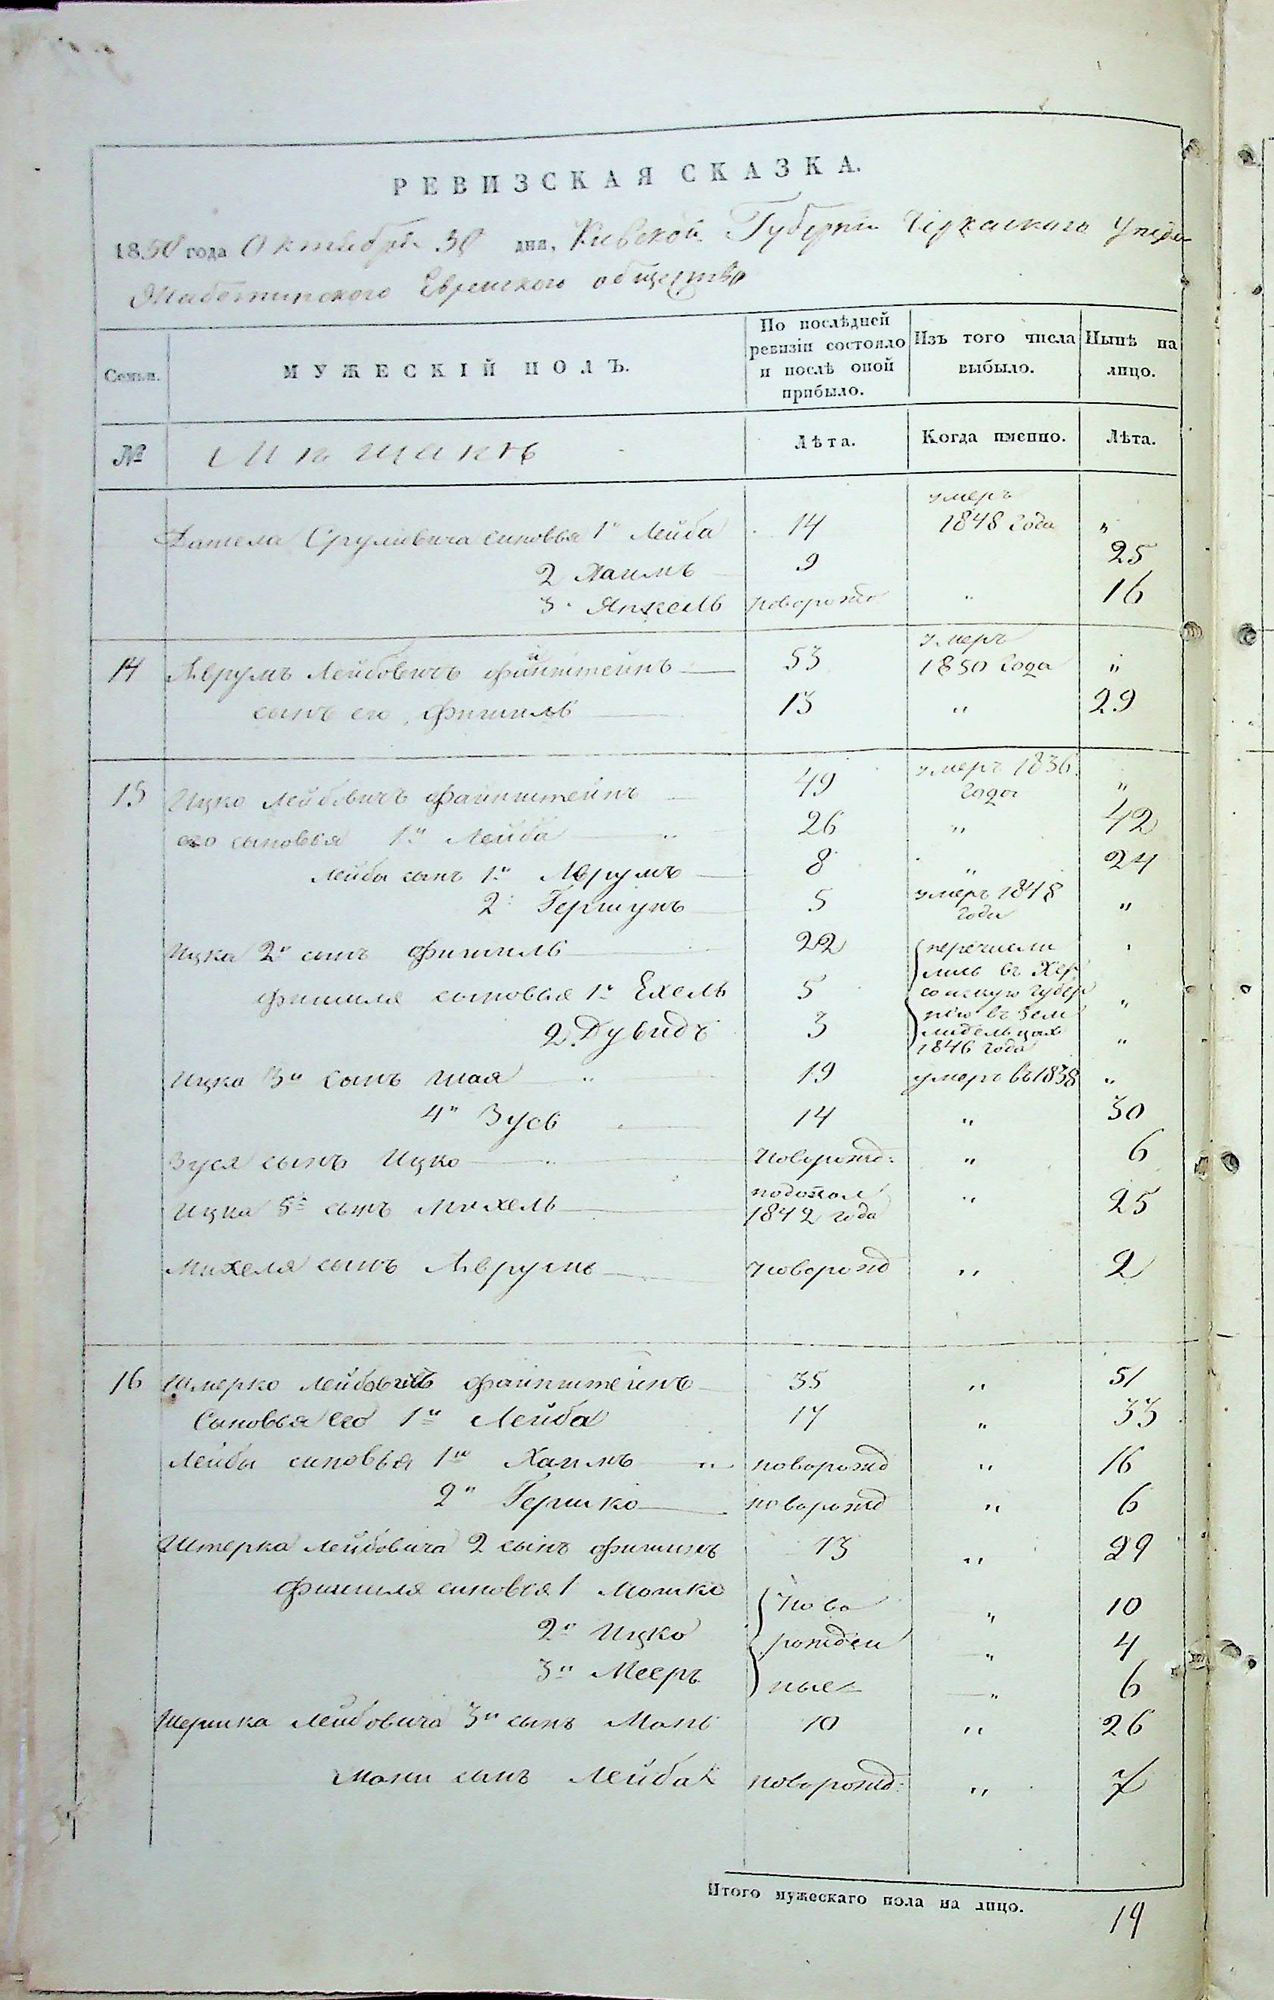 РЕВИЗСКАЯ СКАЗКА.
1850 года Октября 30 дня, Киевской Губерніи Черкаского Уезда
Мабтинского Еврейского общества
Семьи. МУЖЕСКІЙ ПОЛЪ. По послѣдней ревизіи состояло и послѣ оной прибыло. Изъ того числа выбыло. Нынѣ на лицо.
№ Мещане Лѣта. Когда именно. Лѣта.
умеръ
Срулевича синовья 1й Лейба 14 1848 года "
2 Хаимъ 9 25
3. Янкель новорожд " 16
умеръ
14 Аврумъ Лейбовичъ Файнштейнъ 53 1850 года "
сынъ его Фишель 13 " 29
15 Ицко Лейбовичъ Файнштейнъ 49 умеръ 1836 года "
его сыновья 1й Лейба 26 " 42
Лейбы сынъ 1й Аврумъ 8 " 24
2 Гершунъ 5 умеръ 1848 года "
Ицка 2й сынъ Фишель 22 перечисли
Фишеля сыновья 1й Ехель 5 лись въ Херсонскую губер "
2. Дувидъ 3 нію въ земледельцах 1846 года "
Ицка 3й сынъ Шая 19 умеръ въ 1838 "
4й Зусь 14 " 30
Зуся сынъ Ицко новорожд: " 6
Ицка 5й сынъ Михель 1842 года " 25
Михеля сынъ Аврумъ новорожд " 2
16 Шмерко Лейбовичъ Файнштейнъ 35 " 51
Сыновья его 1й Лейба 17 " 33
Лейбы синовья 1й Хаимъ новорожд " 16
2й Гершко новорожд " 6
Шмерка Лейбовича 2 сынъ Фишель 13 " 29
Фишеля синовья 1 Мошко ново " 10
2й Ицко рожден " 4
3й Мееръ ные " 6
Шмерка Лейбовича 3й сынъ Мань 10 " 26
Мани сынъ Лейба новорожд: " 7
Итого мужескаго пола на лицо. 19